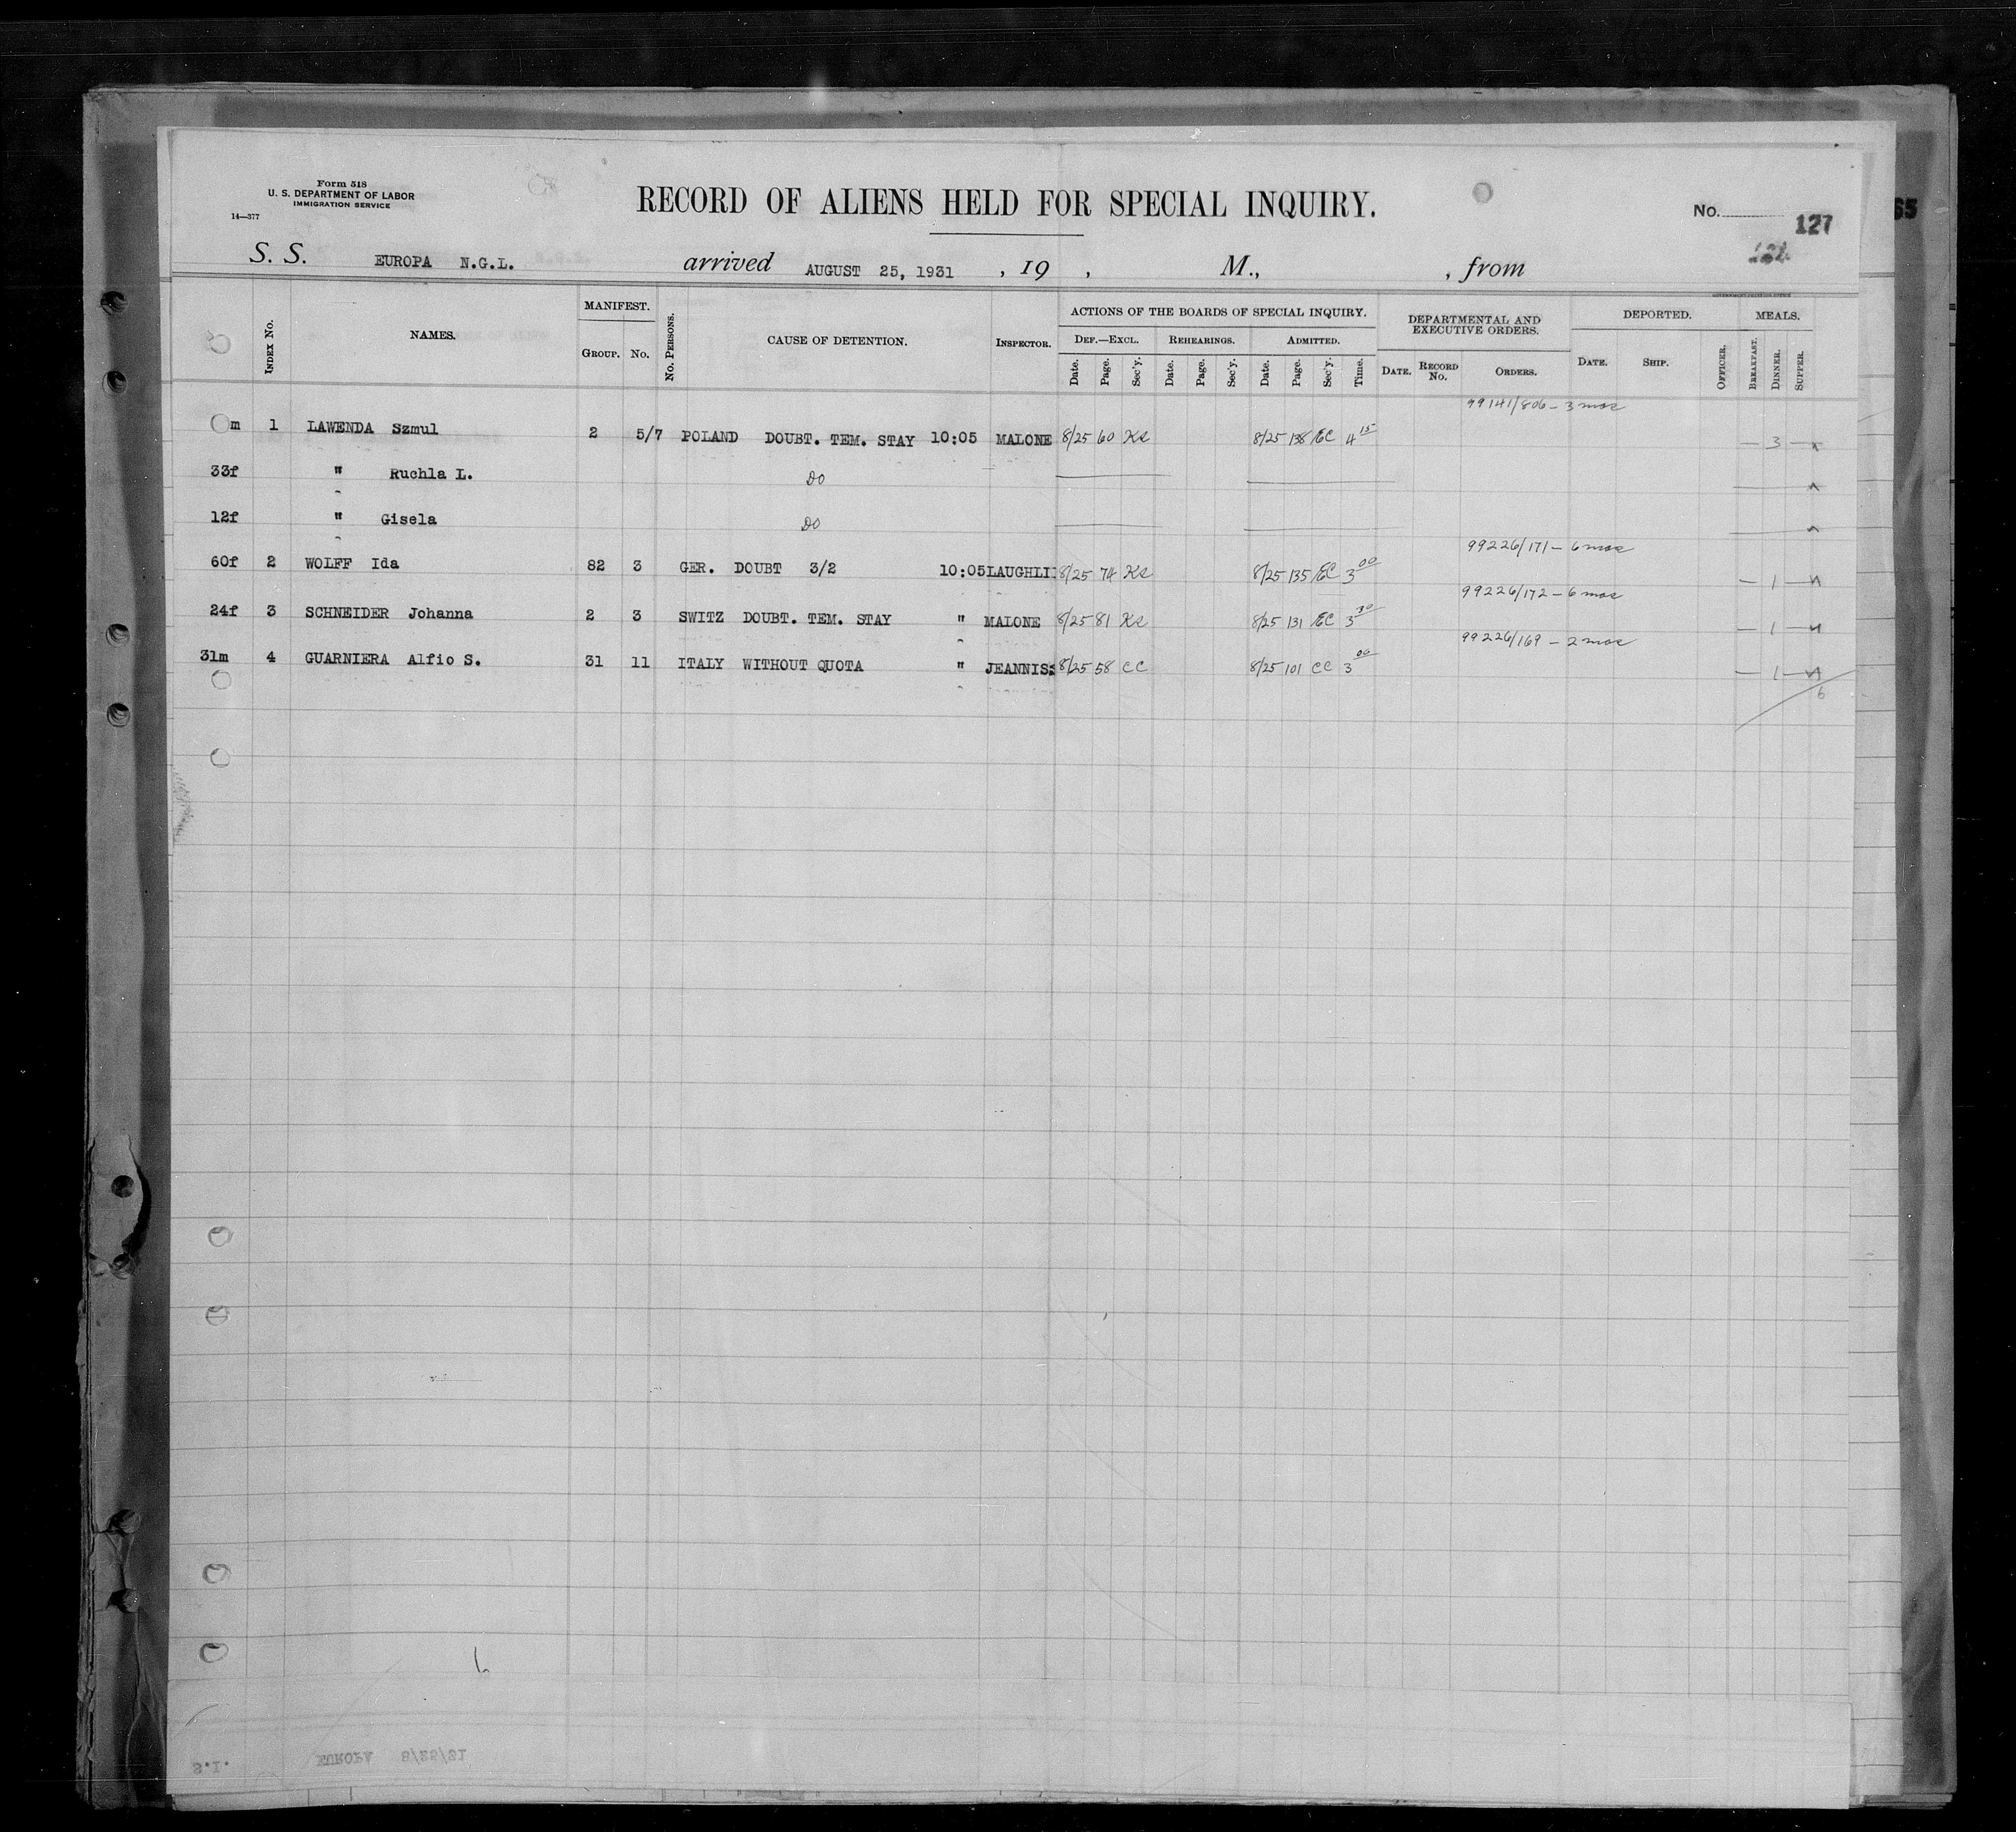 Form 518
U. S. DEPARTMENT OF LABOR
IMMIGRATION SERVICE
14—377
RECORD OF ALIENS HELD FOR SPECIAL INQUIRY.
No. 127
65
S. S. EUROPA N.G.L. arrived AUGUST 25, 1931 , 19 , M., , from
INDEX No. NAMES. MANIFEST. GROUP. No. No. PERSONS. CAUSE OF DETENTION. INSPECTOR. ACTIONS OF THE BOARDS OF SPECIAL INQUIRY. DEF.—EXCL. Date. Page. Sec'y. REHEARINGS. Date. Page. Sec'y. ADMITTED. Date. Page. Sec'y. Time. DEPARTMENTAL AND EXECUTIVE ORDERS. DATE. RECORD No. ORDERS. DEPORTED. DATE. SHIP. OFFICER. MEALS. BREAKFAST. DINNER. SUPPER.
99141/806 – 3 mos
m 1 LAWENDA Szmul 2 5/7 POLAND DOUBT. TEM. STAY 10:05 MALONE 8/25 60 Ks 8/25 138 EC 4 15 — 3 —
33f " Ruchla L. DO
12f " Gisela DO
99226/171 – 6 mos
60f 2 WOLFF Ida 82 3 GER. DOUBT 3/2 10:05 LAUGHLI 8/25 74 Ks 8/25 135 EC 3 00 — 1 —
99226/172 – 6 mos
24f 3 SCHNEIDER Johanna 2 3 SWITZ DOUBT. TEM. STAY " MALONE 8/25 81 Ks 8/25 131 EC 3 30 — 1 —
99226/169 – 2 mos
31m 4 GUARNIERA Alfio S. 31 11 ITALY WITHOUT QUOTA " JEANNIS 8/25 58 CC 8/25 101 CC 3 00 — 1 —
6
S.I. EUROPA 8/25/31